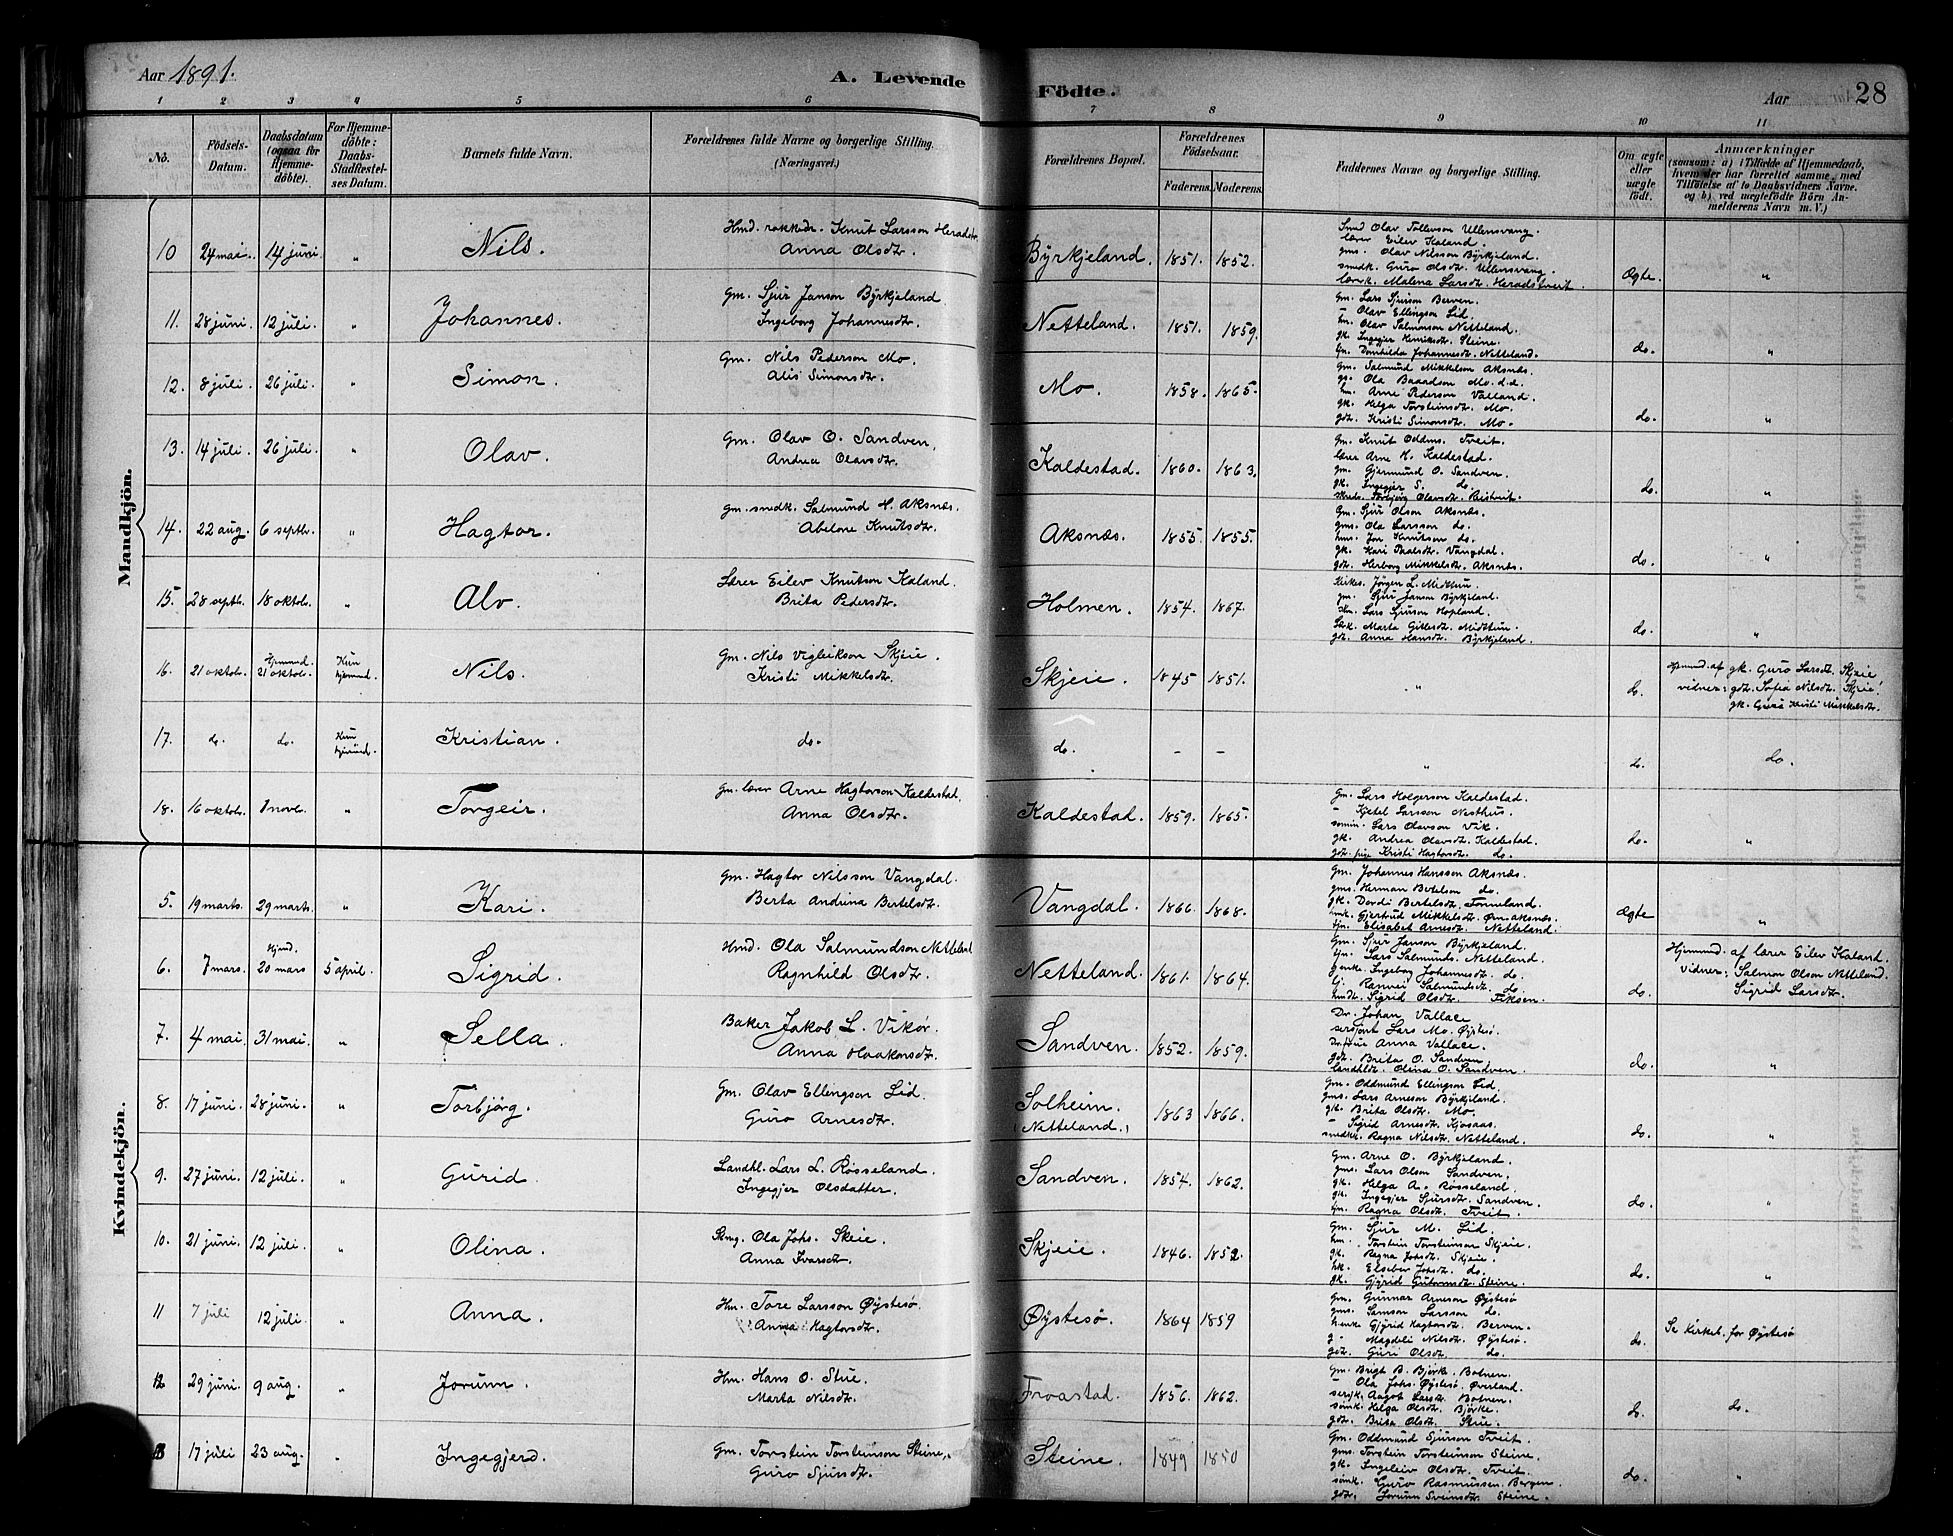 Aar 1891.
A. Levende Födte.
Aar
28
1 2 3 4 5 6 7 8 9 10 11
No.
Födsels-Datum.
Daabsdatum (ogsaa for Hjemme-döbte).
For Hjemme-döbte: Daabs-Stadfæstel-ses Datum.
Barnets fulde Navn.
Forældrenes fulde Navne og borgerlige Stilling. (Næringsvei.)
Forældrenes Bopæl.
Forældrenes Födselsaar.
Faderens. Moderens.
Faddernes Navne og borgerlige Stilling.
Om ægte eller uægte födt.
Anmærkninger
(saasom: a) i Tilfælde af Hjemmedaab,
hvem der har forrettet samme, med
Tilföielse af to Daabsvidners Navne.
og b) ved uægtefödte Börn An-
melderens Navn m. V.)
Mandkjön.
10 24 mai. 14 juni. " Nils. Hmd. rokkedr. Knut Larsson Heradstv.
Anna Olsdtr. Byrkjeland. 1851. 1852. Ægte. "
Smed Olav Tollevson Ullensvang.
lærer Eilev Kaland.
gms. Olav Nilsson Byrkjeland.
smedk. Guro Olsdtr. Ullensvang.
lærerk. Malena Larsdt. Heradstveit.
11. 28 juni. 12 juli. " Johannes. Gm. Sjur Janson Byrkjeland
Ingeborg Johannesdtr. Netteland. 1851. 1859. do. "
gm. Lars Sjurson Berven.
" Olav Ellingson Lid.
hm. Olav Salmonson Netteland.
gk. Ingegjer Henriksdt. Steine.
tjn. Domhilda Johannesdt. Netteland.
12. 8 juli. 26 juli. " Simon. Gm. Nils Pederson Mo.
Alis Simonsdtr. Mo. 1858. 1865. do. "
gm. Salmund Mikkelson Aksnæs.
gg. Ola Baardson Mo. d.e.
hm. Arne Pederson Valland.
gk. Helga Torsteinsdt. Mo.
gdt. Kristi Simonsdt. Mo.
13. 14 juli. 26 juli. " Olav. Gm. Olav O. Sandven.
Andrea Olavsdtr. Kaldestad. 1860. 1863. do. "
gm. Knut Oddms. Tveit.
lærer Arne H. Kaldestad.
gm. Gjermund O. Sandven.
gk. Ingegjer S. do.
Torbjörg Olavsdt.
14. 22 aug. 6 septb. " Hagtor. gm. smedk. Salmund N. Aksnæs.
Abelone Knutsdtr. Aksnæs. 1855. 1855. do. "
Gm. Sjur Olson Aksnæs.
gms. Ola Larsson do.
hms. Jon Knutson do.
gk. Kari Paalsdt. Vangdal.
gdt. Herborg Mikkelsdt. Aksnæs.
15. 28 septb. 18 oktob. " Alv. Lærer Eilev Knutson Kaland.
Brita Pedersdtr. Holmen. 1854. 1867. do. "
Kirkes. Jörgen L. Midttun.
gm. Sjur Janson Byrkjeland.
Hm. Lars Sjurson Hopland.
Marta Gitlesdt. Midttun.
gdt. Anna Hansdt. Byrkjeland.
16. 21 oktob. Hjemmd. 21 oktob. Kun hjemmd. Nils. Gm. Nils Vigleikson Skjeie.
Kristi Mikkelsdtr. Skjeie. 1845 1851. " do.
Hjemmd. af gk. Guro Larsdt. Skjeie
vidner: gdt. Sofia Nilsdt. Skjeie.
gk. Kristi Mikkelsdt.
17. do. do. Kun hjemmd. Kristian. do. do. - - " do. do.
18. 16 oktob. 1 nove. " Torgeir. gm. lærer Arne Hagtorson Kaldestad.
Anna Olsdtr. Kaldestad. 1859. 1865. do. "
Gm. Lars Holgerson Kaldestad.
- Kjetel Larsson Nesthus.
semin. Lars Olavson Vik.
gk. Andrea Olavsdt. Kaldestad.
gdt. pige Kristi Hagtorsdt. do.
Kvindekjön.
5. 19 marts. 29 marts. " Kari. Gm. Hagtor Nilsson Vangdal.
Berta Andrina Bertelsdtr. Vangdal. 1866. 1868. Ægte "
Gm. Johannes Hansson Aksnæs.
gms. Herman Botelson do.
gk. Dordi Bertelsdt. Tonneland.
Gjertrud Mikkelsdt. Aksnæs.
tjn. Elisabet Arnesdt. Netteland.
6. 7 mars. Hjmd. 20 mars 5 april. Sigrid. Hmd. Ola Salmundson Netteland
Ragnhild Olsdtr. Netteland. 1861. 1864. do.
Gm. Sjur Janson Byrkjeland.
tjn. Lars Salmunds. Netteland.
Ingeborg Johannesdt. do.
tj. Ranvei Salmundsdt. do.
husdt. Sigrid Olsdt. Fiksen.
Hjemmd. af lærer Eilev Kaland.
Vidner: Salmon Olson Netteland.
Sigrid Larsdtr.
7. 4 mai 31 mai. " Sella. Baker Jakob L. Vikör.
Anna Haakonsdtr. Sandven. 1852. 1859. do. "
Dr. Johan Vallace
sersjant Lars Mo. Øystesö.
Dr. frue Anna Vallace.
gdt. Brita O. Sandven.
landhldt. Olina O. Sandven.
8. 17 juni. 28 juni. " Torbjörg. Gm. Olav Ellingson Lid.
Guro Arnesdtr. Solheim. (Netteland.) 1863 1866. do. "
Gm. Oddmund Ellingson Lid.
gms. Lars Arneson Byrkjeland.
gk. Brita Olsdt. Mo.
- Sigrid Arnesdt. Kjosaas.
smedk. Ragna Nilsdt. Netteland.
9. 27 juni. 12 juli. " Gurid. Landhl. Lars L. Rösseland.
Ingegjer Olsdatter. Sandven. 1854. 1862. do. "
Gm. Arne O. Byrkjeland.
gms. Lars Olson Sandven.
gk. Helga A. Rösseland.
gk. Ingegjer Sjursdt. Sandven.
tjn. Ragna Olsdt. Tveit.
10. 21 juni. 12 juli. " Olina. Skmg. Ola Johs. Skeie.
Anna Ivarsdt. Skjeie. 1846. 1852. do. "
Gm. Sjur M. Lid.
hm. Torstein Torsteinson Skjeie.
gk. Ragna Johsdt. Skjeie.
hk. Elseber Johsdt. do.
gk. Gjyrid Gutormsdt. Steine.
11 7 juli 12 juli. " Anna. Hm. Tore Larsson Øystesö.
Anna Hagtorsdt. Øystesö. 1864 1859 do. Se Kirkeb. for Øystesö
Gm. Gunnar Arneson Øystesö
gms. Samson Larsson do.
Gjyrid Hagtorsdt. Berven.
g - Magdeli Nilsdt. Øystesö.
gdt. Guri Olsdt. do.
12 29 juni. 9 aug. " Jorunn. Hm. Hans O. Stue.
Marta Nilsdtr. Froastad. 1856. 1862. do. do.
Gm. Brigt B. Björk. Botnen.
- Ola Johs. Øystesö. Øverland.
sersjk. Aagot Larsdt. Botnen.
sömk. Helga Olsdt. Björke.
gdt. Brita Olsdt. Stue.
13 17 juli 23 aug. " Ingegjerd. Gm. Torstein Torsteinson Steine.
Guro Sjursdtr. Steine. 1849 1850 do. "
Gm. Oddmund Sjurson Tveit.
gms. Torstein Torsteinson Steine.
gk. Ingeleiv Olsdt. Tveit.
sömk. Guro Rasmussen. Bergen.
gdt. Jorunn Sveinsdt. Steine.